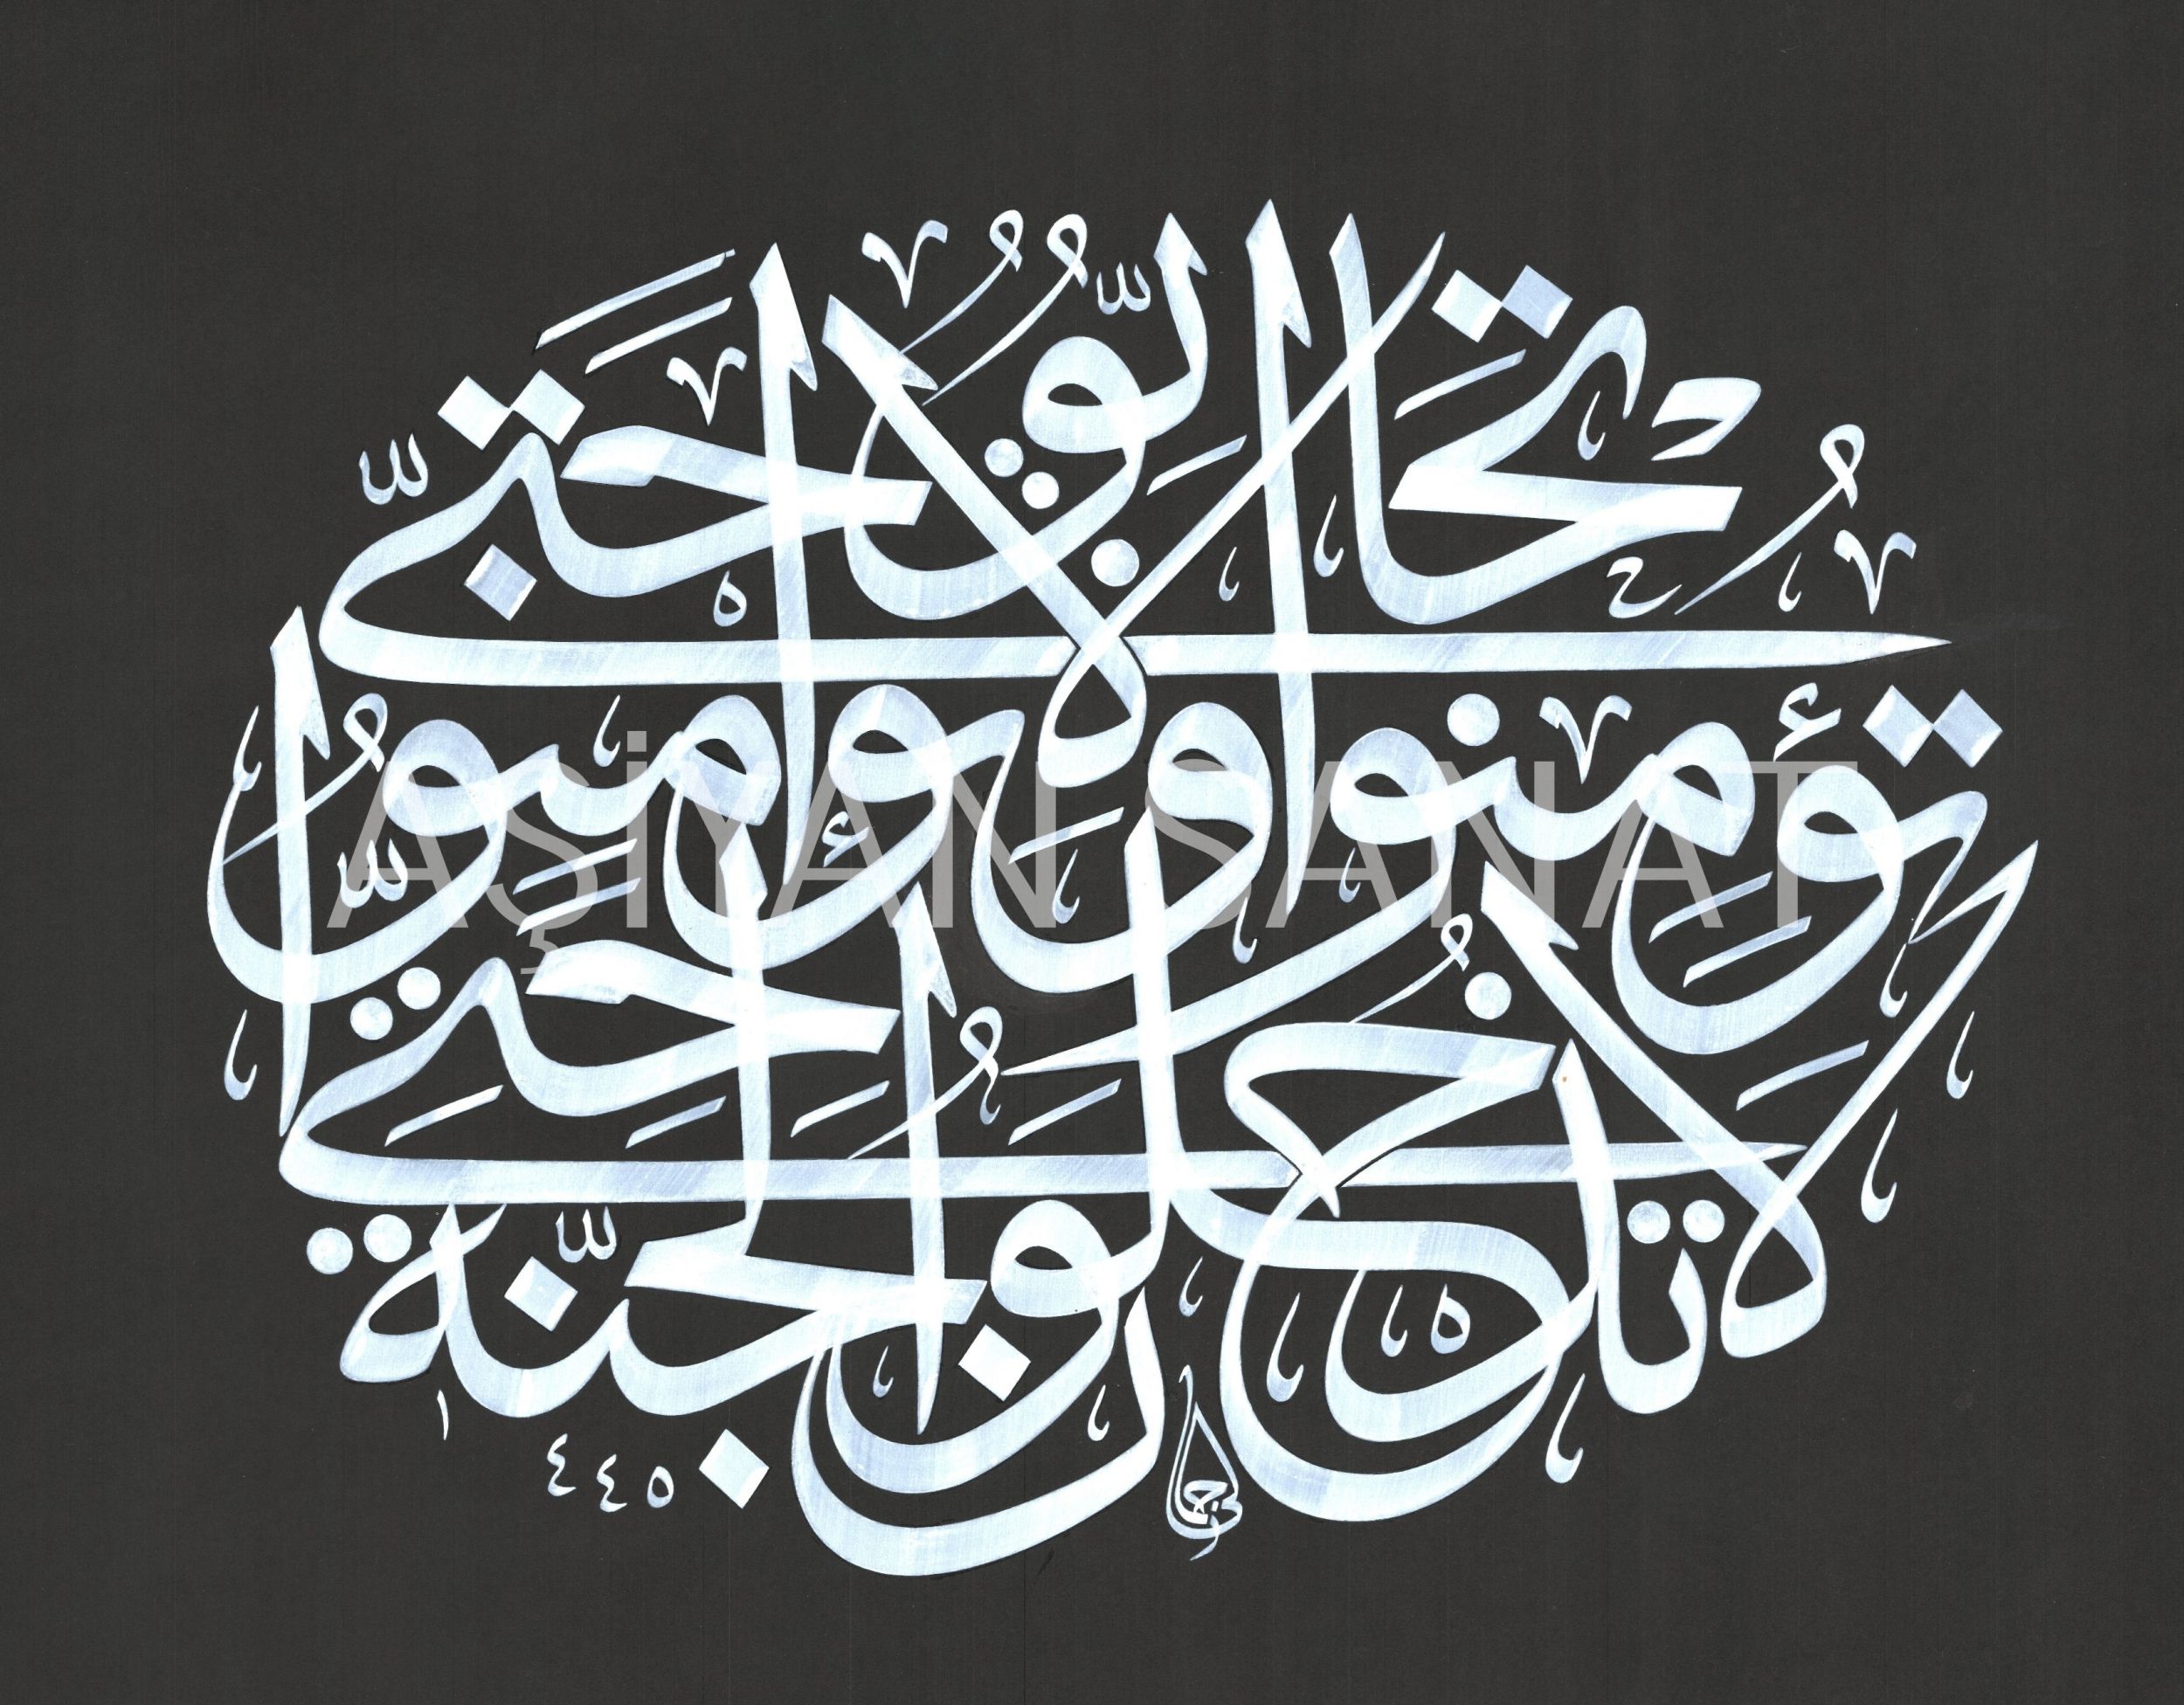 لا تدخلون الجنة
حتى تؤمنوا ولا تؤمنوا
حتى تحابوا
١٤٤٥
AŞİYAN SANAT